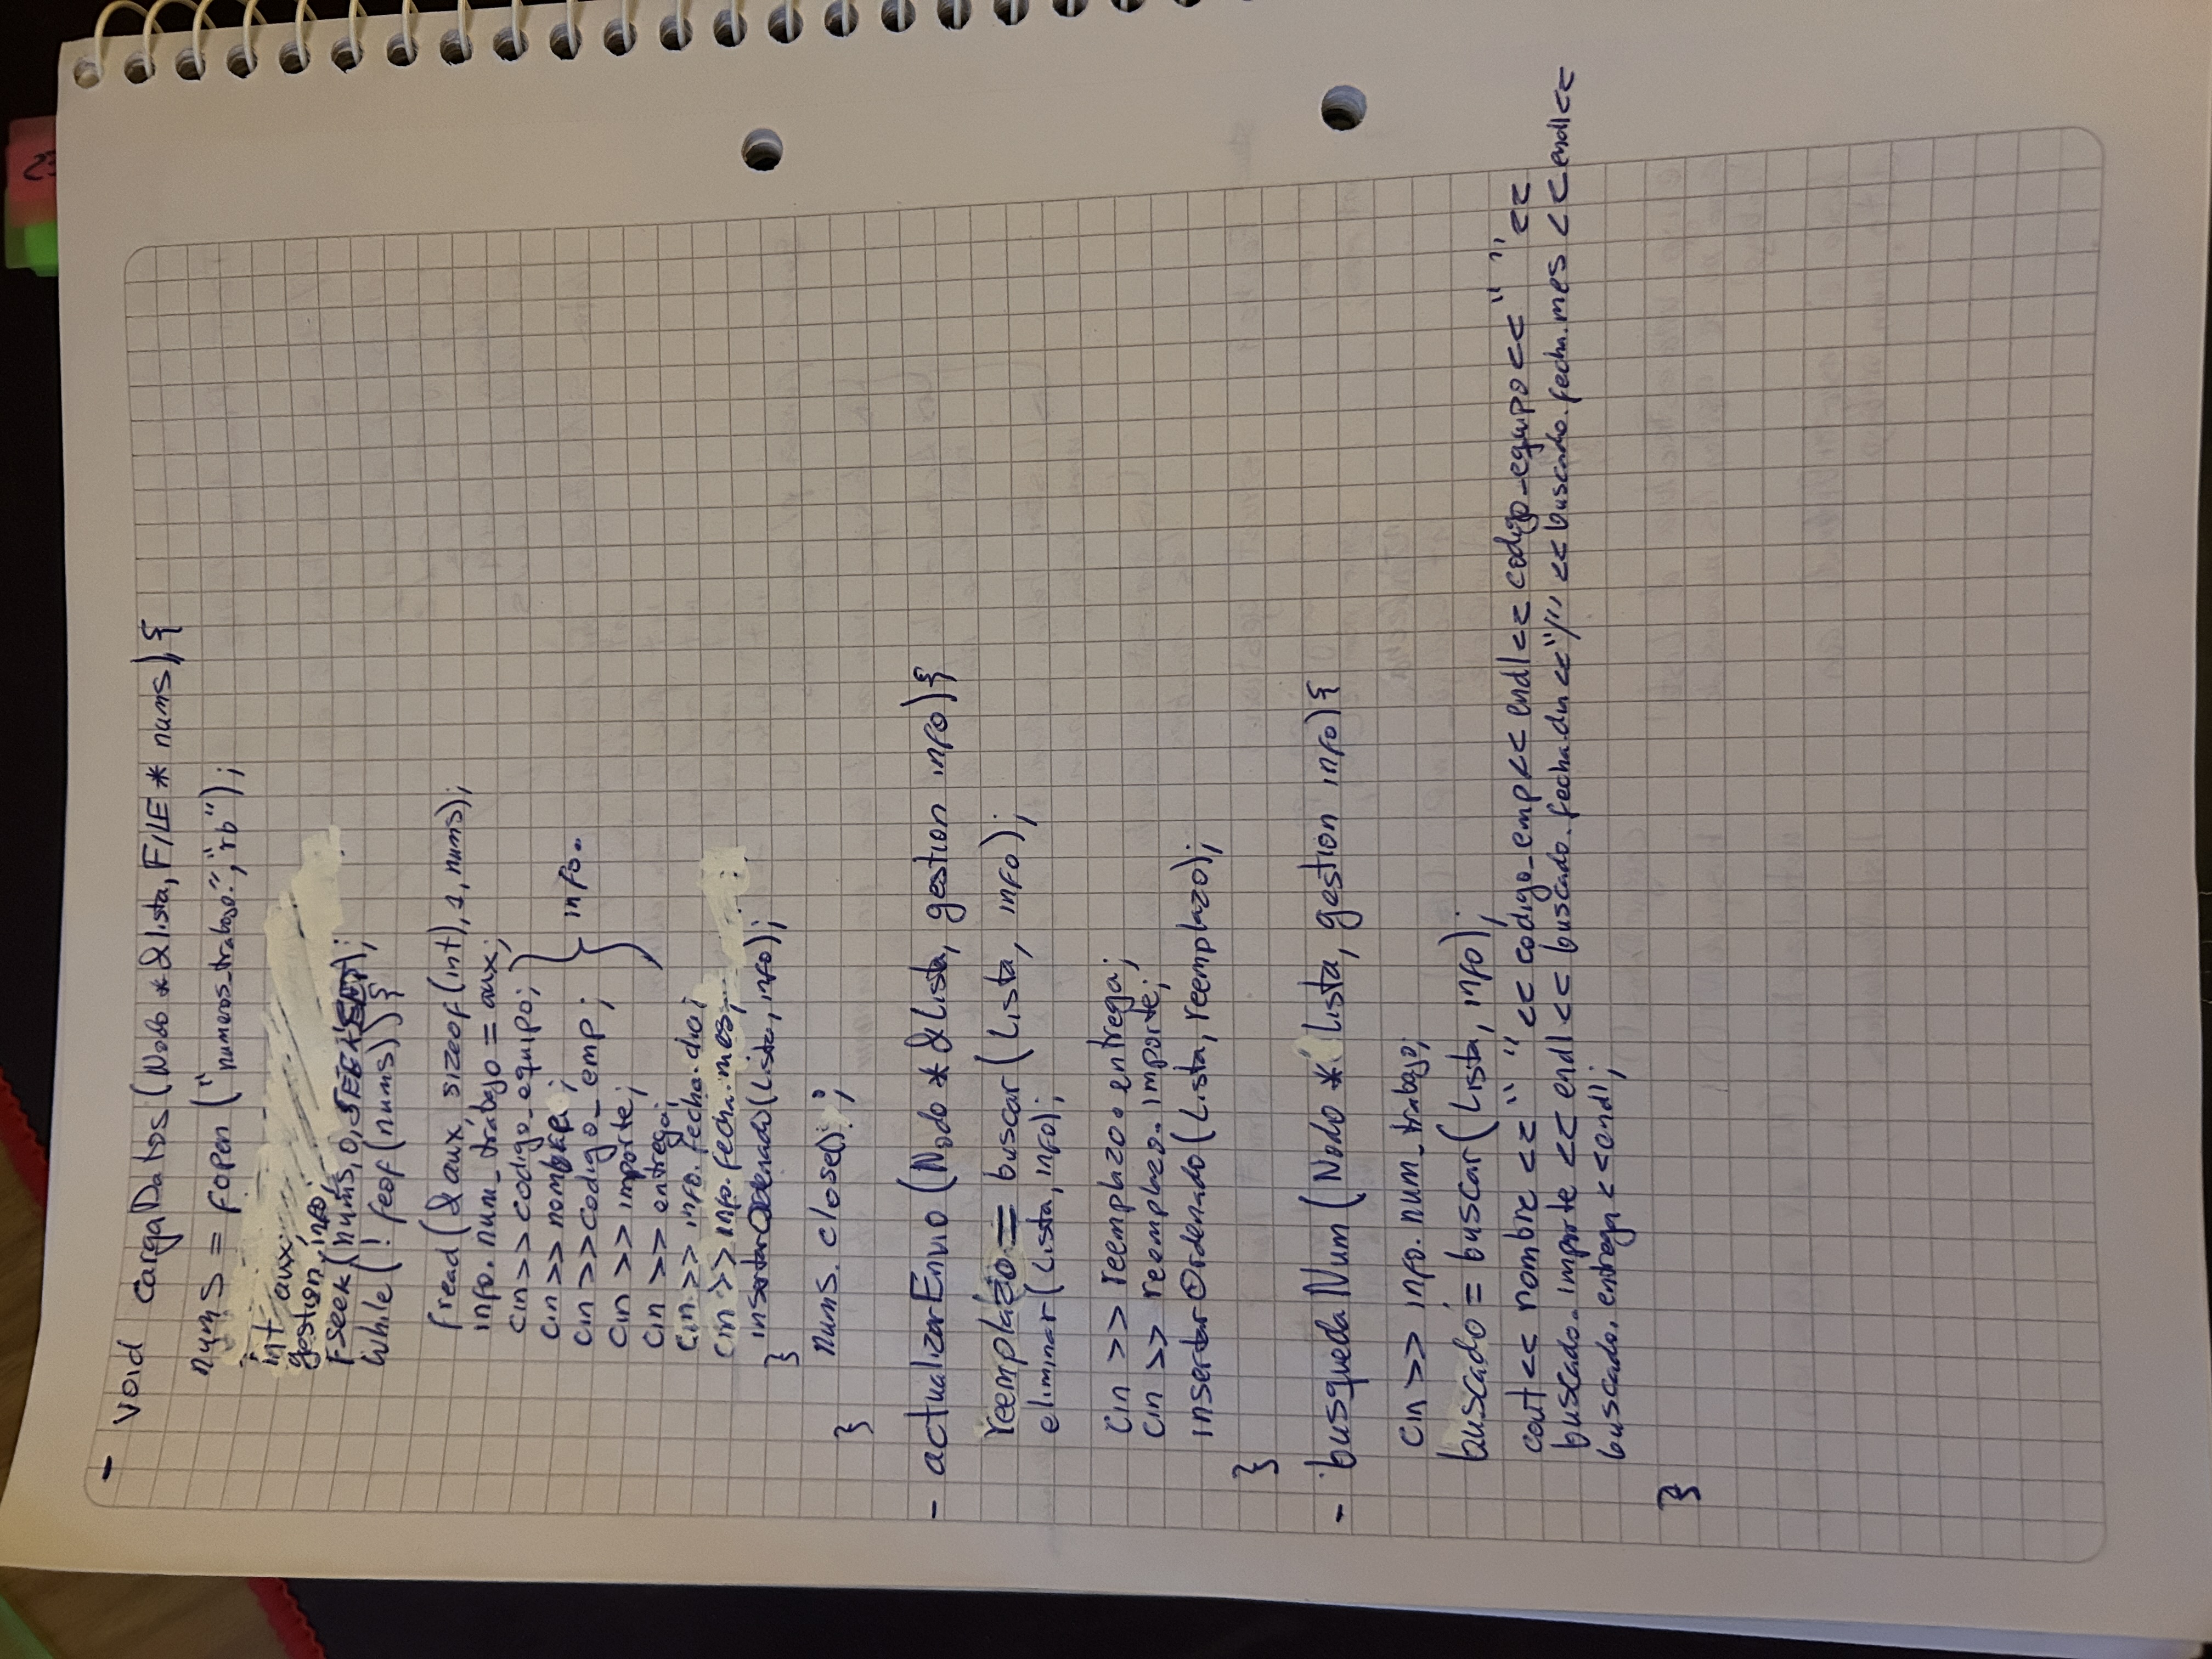 - void cargaDatos (Nodo *&lista, FILE * nums) {
nums = fopen ("numeros_trabajo.", "rb");
int aux;
gestion info;
Fseek (nums, 0, SEEK SET);
while ( ! feof (nums)) {
fread (& aux, sizeof (int), 1, nums);
info. num_trabajo = aux;
cin >> codigo_equipo;
cin >> nombre ;
cin >> codigo_emp ;
info.
cin >> importe;
cin >> entrega;
cin >> info. fecha. dia;
cin >> info. fecha. mes;
insertarOrdenado (Lista, info);
}
nums. close() ;
}
- actualizarEnvio (Nodo *&Lista, gestion info) {
reemplazo = buscar (Lista, info);
eliminar (Lista, info);
cin >> reemplazo. entrega;
cin >> reemplazo. importe;
insertarOrdenado (Lista, reemplazo);
}
- busquedaNum (Nodo * lista, gestion info) {
cin >> info. num_trabajo;
buscado = buscar (Lista, info);
cout << nombre << " " << codigo_emp << endl << codigo_equipo << " " <<
buscado. importe << endl << buscado. fecha. dia << "/" << buscado. fecha. mes << endl <<
buscado. entrega << endl;
}